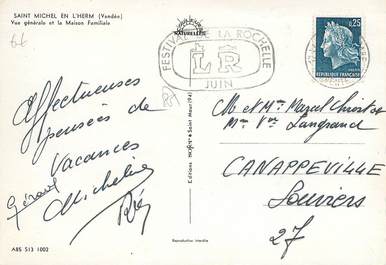 SAINT MICHEL EN L'HERM (Vendée)
Vue générale et la Maison Familiale
66
NATURELLES
FESTIVAL DE LA ROCHELLE
LR
JUIN
0,25
REPUBLIQUE FRANÇAISE
Affectueuses
pensées de
Vacances
Gérard Micheline
M et Mme Marcel
Mme Vve Langrand
CANAPPEVILLE
Louviers
27
Editions
Saint Maur (94)
Reproduction interdite
ABS 513 1002